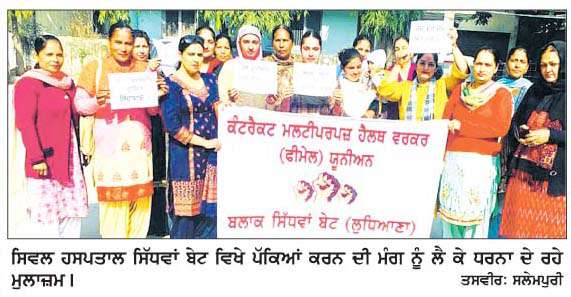 ਕੰਟਰੈਕਟ ਮਲਟੀਪਰਪਜ਼ ਹੈਲਥ ਵਰਕਰ
(ਫੀਮੇਲ) ਯੂਨੀਅਨ
ਬਲਾਕ ਸਿੱਧਵਾਂ ਬੇਟ (ਲੁਧਿਆਣਾ)
ਸਿਵਲ ਹਸਪਤਾਲ ਸਿੱਧਵਾਂ ਬੇਟ ਵਿਖੇ ਪੱਕਿਆਂ ਕਰਨ ਦੀ ਮੰਗ ਨੂੰ ਲੈ ਕੇ ਧਰਨਾ ਦੇ ਰਹੇ
ਮੁਲਾਜ਼ਮ। ਤਸਵੀਰ: ਸਲੇਮਪੁਰੀ